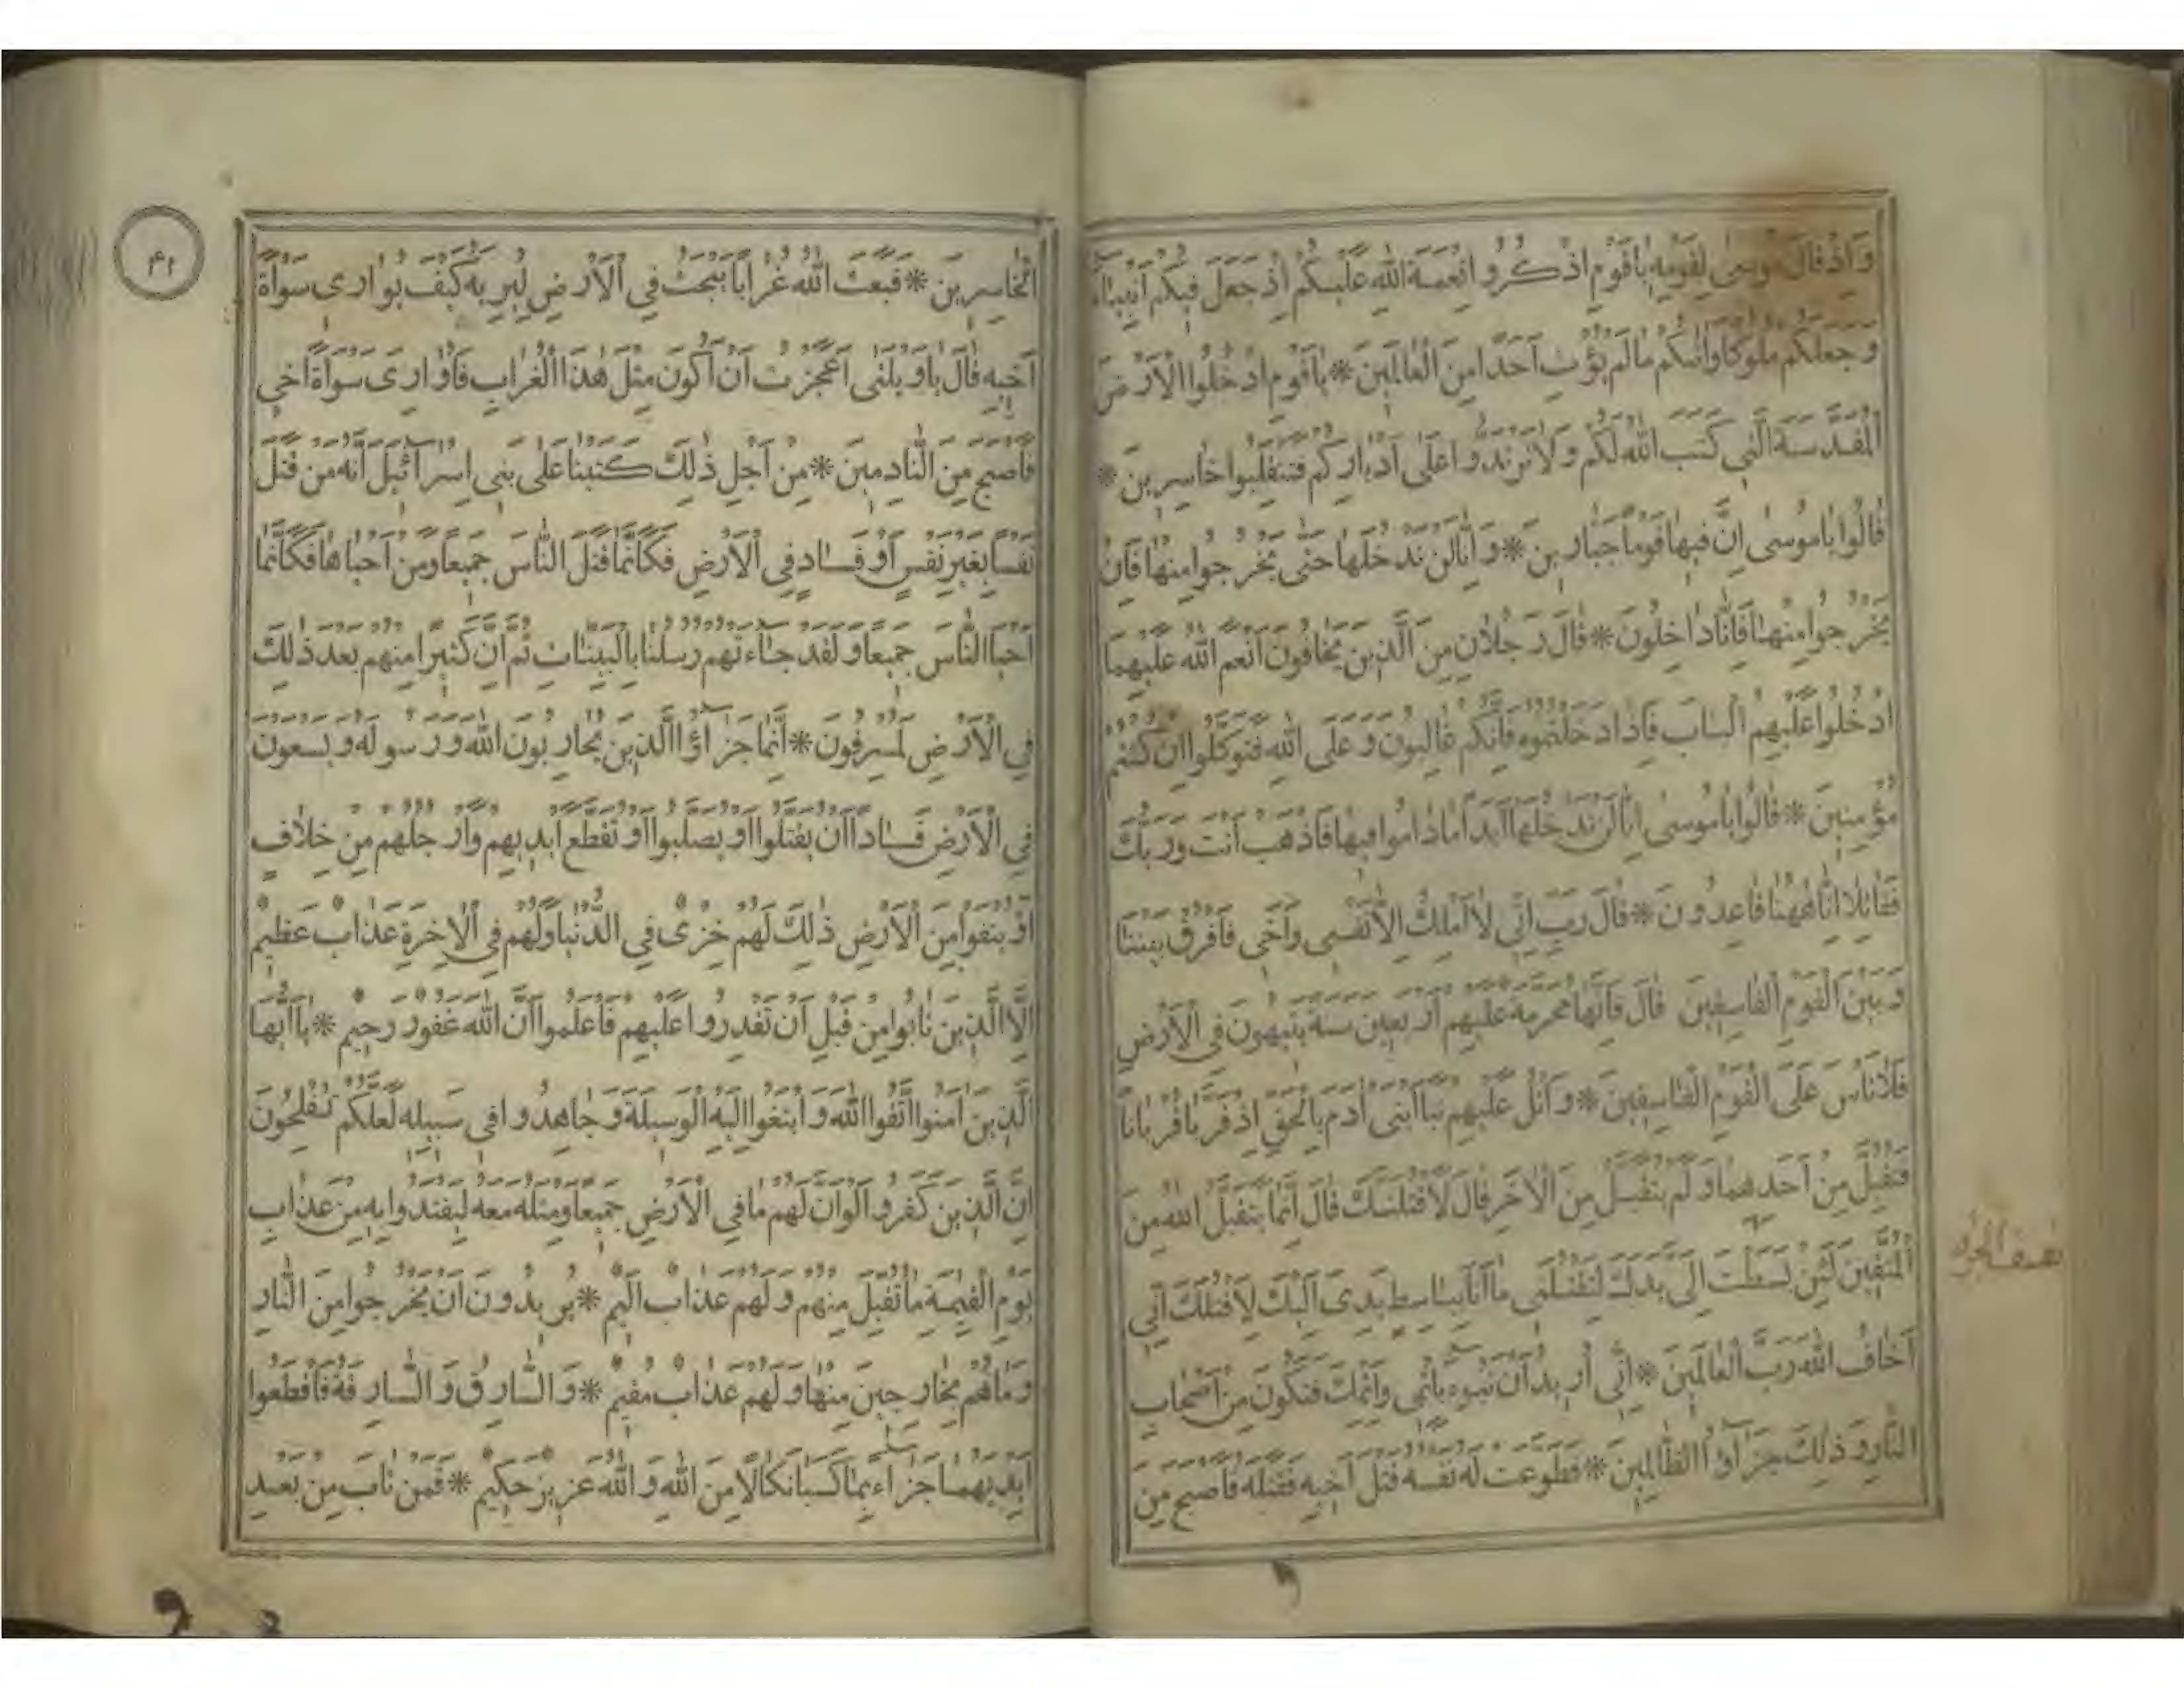 وَاِذْ قَالَ مُوسٰى لِقَوْمِهِ يٰاقَوْمِ اذْكُرُوا نِعْمَةَ اللّٰهِ عَلَيْكُمْ اِذْ جَعَلَ فِيكُمْ اَنْبِيٰاءَ
وَجَعَلَكُمْ مُلُوكًا وَاٰتٰيكُمْ مٰا لَمْ يُؤْتِ اَحَدًا مِنَ الْعٰالَمِينَ * يٰاقَوْمِ ادْخُلُوا الْاَرْضَ
الْمُقَدَّسَةَ الَّتِي كَتَبَ اللّٰهُ لَكُمْ وَلٰا تَرْتَدُّوا عَلٰى اَدْبٰارِكُمْ فَتَنْقَلِبُوا خٰاسِرِينَ *
قٰالُوا يٰامُوسٰى اِنَّ فِيهٰا قَوْمًا جَبّٰارِينَ * وَاِنّٰا لَنْ نَدْخُلَهٰا حَتّٰى يَخْرُجُوا مِنْهٰا فَاِنْ
يَخْرُجُوا مِنْهٰا فَاِنّٰا دٰاخِلُونَ * قٰالَ رَجُلٰانِ مِنَ الَّذِينَ يَخٰافُونَ اَنْعَمَ اللّٰهُ عَلَيْهِمَا
ادْخُلُوا عَلَيْهِمُ الْبٰابَ فَاِذٰا دَخَلْتُمُوهُ فَاِنَّكُمْ غٰالِبُونَ وَعَلَى اللّٰهِ فَتَوَكَّلُوا اِنْ كُنْتُمْ
مُؤْمِنِينَ * قٰالُوا يٰامُوسٰى اِنّٰا لَنْ نَدْخُلَهٰا اَبَدًا مٰا دٰامُوا فِيهٰا فَاذْهَبْ اَنْتَ وَرَبُّكَ
فَقٰاتِلٰا اِنّٰا هٰهُنٰا قٰاعِدُونَ * قٰالَ رَبِّ اِنِّي لٰا اَمْلِكُ اِلّٰا نَفْسِي وَاَخِي فَافْرُقْ بَيْنَنٰا
وَبَيْنَ الْقَوْمِ الْفٰاسِقِينَ قٰالَ فَاِنَّهٰا مُحَرَّمَةٌ عَلَيْهِمْ اَرْبَعِينَ سَنَةً يَتِيهُونَ فِي الْاَرْضِ
فَلٰا تَاْسَ عَلَى الْقَوْمِ الْفٰاسِقِينَ * وَاتْلُ عَلَيْهِمْ نَبَاَ ابْنَيْ اٰدَمَ بِالْحَقِّ اِذْ قَرَّبٰا قُرْبٰانًا
فَتُقُبِّلَ مِنْ اَحَدِهِمٰا وَلَمْ يُتَقَبَّلْ مِنَ الْاٰخَرِ قٰالَ لَاَقْتُلَنَّكَ قٰالَ اِنَّمٰا يَتَقَبَّلُ اللّٰهُ مِنَ
الْمُتَّقِينَ لَئِنْ بَسَطْتَ اِلَيَّ يَدَكَ لِتَقْتُلَنِي مٰا اَنَا بِبٰاسِطٍ يَدِيَ اِلَيْكَ لِاَقْتُلَكَ اِنِّي
اَخٰافُ اللّٰهَ رَبَّ الْعٰالَمِينَ * اِنِّي اُرِيدُ اَنْ تَبُوءَ بِاِثْمِي وَاِثْمِكَ فَتَكُونَ مِنْ اَصْحٰابِ
النّٰارِ وَذٰلِكَ جَزٰاؤُا الظّٰالِمِينَ * فَطَوَّعَتْ لَهُ نَفْسُهُ قَتْلَ اَخِيهِ فَقَتَلَهُ فَاَصْبَحَ مِنَ
٤١
الْخٰاسِرِينَ * فَبَعَثَ اللّٰهُ غُرٰابًا يَبْحَثُ فِي الْاَرْضِ لِيُرِيَهُ كَيْفَ يُوٰارِي سَوْاَةَ
اَخِيهِ قٰالَ يٰاوَيْلَتٰى اَعَجَزْتُ اَنْ اَكُونَ مِثْلَ هٰذَا الْغُرٰابِ فَاُوٰارِيَ سَوْاَةَ اَخِي
فَاَصْبَحَ مِنَ النّٰادِمِينَ * مِنْ اَجْلِ ذٰلِكَ كَتَبْنٰا عَلٰى بَنِي اِسْرٰائِيلَ اَنَّهُ مَنْ قَتَلَ
نَفْسًا بِغَيْرِ نَفْسٍ اَوْ فَسٰادٍ فِي الْاَرْضِ فَكَاَنَّمٰا قَتَلَ النّٰاسَ جَمِيعًا وَمَنْ اَحْيٰاهٰا فَكَاَنَّمٰا
اَحْيَا النّٰاسَ جَمِيعًا وَلَقَدْ جٰاءَتْهُمْ رُسُلُنٰا بِالْبَيِّنٰاتِ ثُمَّ اِنَّ كَثِيرًا مِنْهُمْ بَعْدَ ذٰلِكَ
فِي الْاَرْضِ لَمُسْرِفُونَ * اِنَّمٰا جَزٰاؤُا الَّذِينَ يُحٰارِبُونَ اللّٰهَ وَرَسُولَهُ وَيَسْعَوْنَ
فِي الْاَرْضِ فَسٰادًا اَنْ يُقَتَّلُوا اَوْ يُصَلَّبُوا اَوْ تُقَطَّعَ اَيْدِيهِمْ وَاَرْجُلُهُمْ مِنْ خِلٰافٍ
اَوْ يُنْفَوْا مِنَ الْاَرْضِ ذٰلِكَ لَهُمْ خِزْيٌ فِي الدُّنْيٰا وَلَهُمْ فِي الْاٰخِرَةِ عَذٰابٌ عَظِيمٌ
اِلَّا الَّذِينَ تٰابُوا مِنْ قَبْلِ اَنْ تَقْدِرُوا عَلَيْهِمْ فَاعْلَمُوا اَنَّ اللّٰهَ غَفُورٌ رَحِيمٌ * يٰا اَيُّهَا
الَّذِينَ اٰمَنُوا اتَّقُوا اللّٰهَ وَابْتَغُوا اِلَيْهِ الْوَسِيلَةَ وَجٰاهِدُوا فِي سَبِيلِهِ لَعَلَّكُمْ تُفْلِحُونَ
اِنَّ الَّذِينَ كَفَرُوا لَوْ اَنَّ لَهُمْ مٰا فِي الْاَرْضِ جَمِيعًا وَمِثْلَهُ مَعَهُ لِيَفْتَدُوا بِهِ مِنْ عَذٰابِ
يَوْمِ الْقِيٰمَةِ مٰا تُقُبِّلَ مِنْهُمْ وَلَهُمْ عَذٰابٌ اَلِيمٌ * يُرِيدُونَ اَنْ يَخْرُجُوا مِنَ النّٰارِ
وَمٰا هُمْ بِخٰارِجِينَ مِنْهٰا وَلَهُمْ عَذٰابٌ مُقِيمٌ * وَالسّٰارِقُ وَالسّٰارِقَةُ فَاقْطَعُوا
اَيْدِيَهُمٰا جَزٰاءً بِمٰا كَسَبٰا نَكٰالًا مِنَ اللّٰهِ وَاللّٰهُ عَزِيزٌ حَكِيمٌ * فَمَنْ تٰابَ مِنْ بَعْدِ